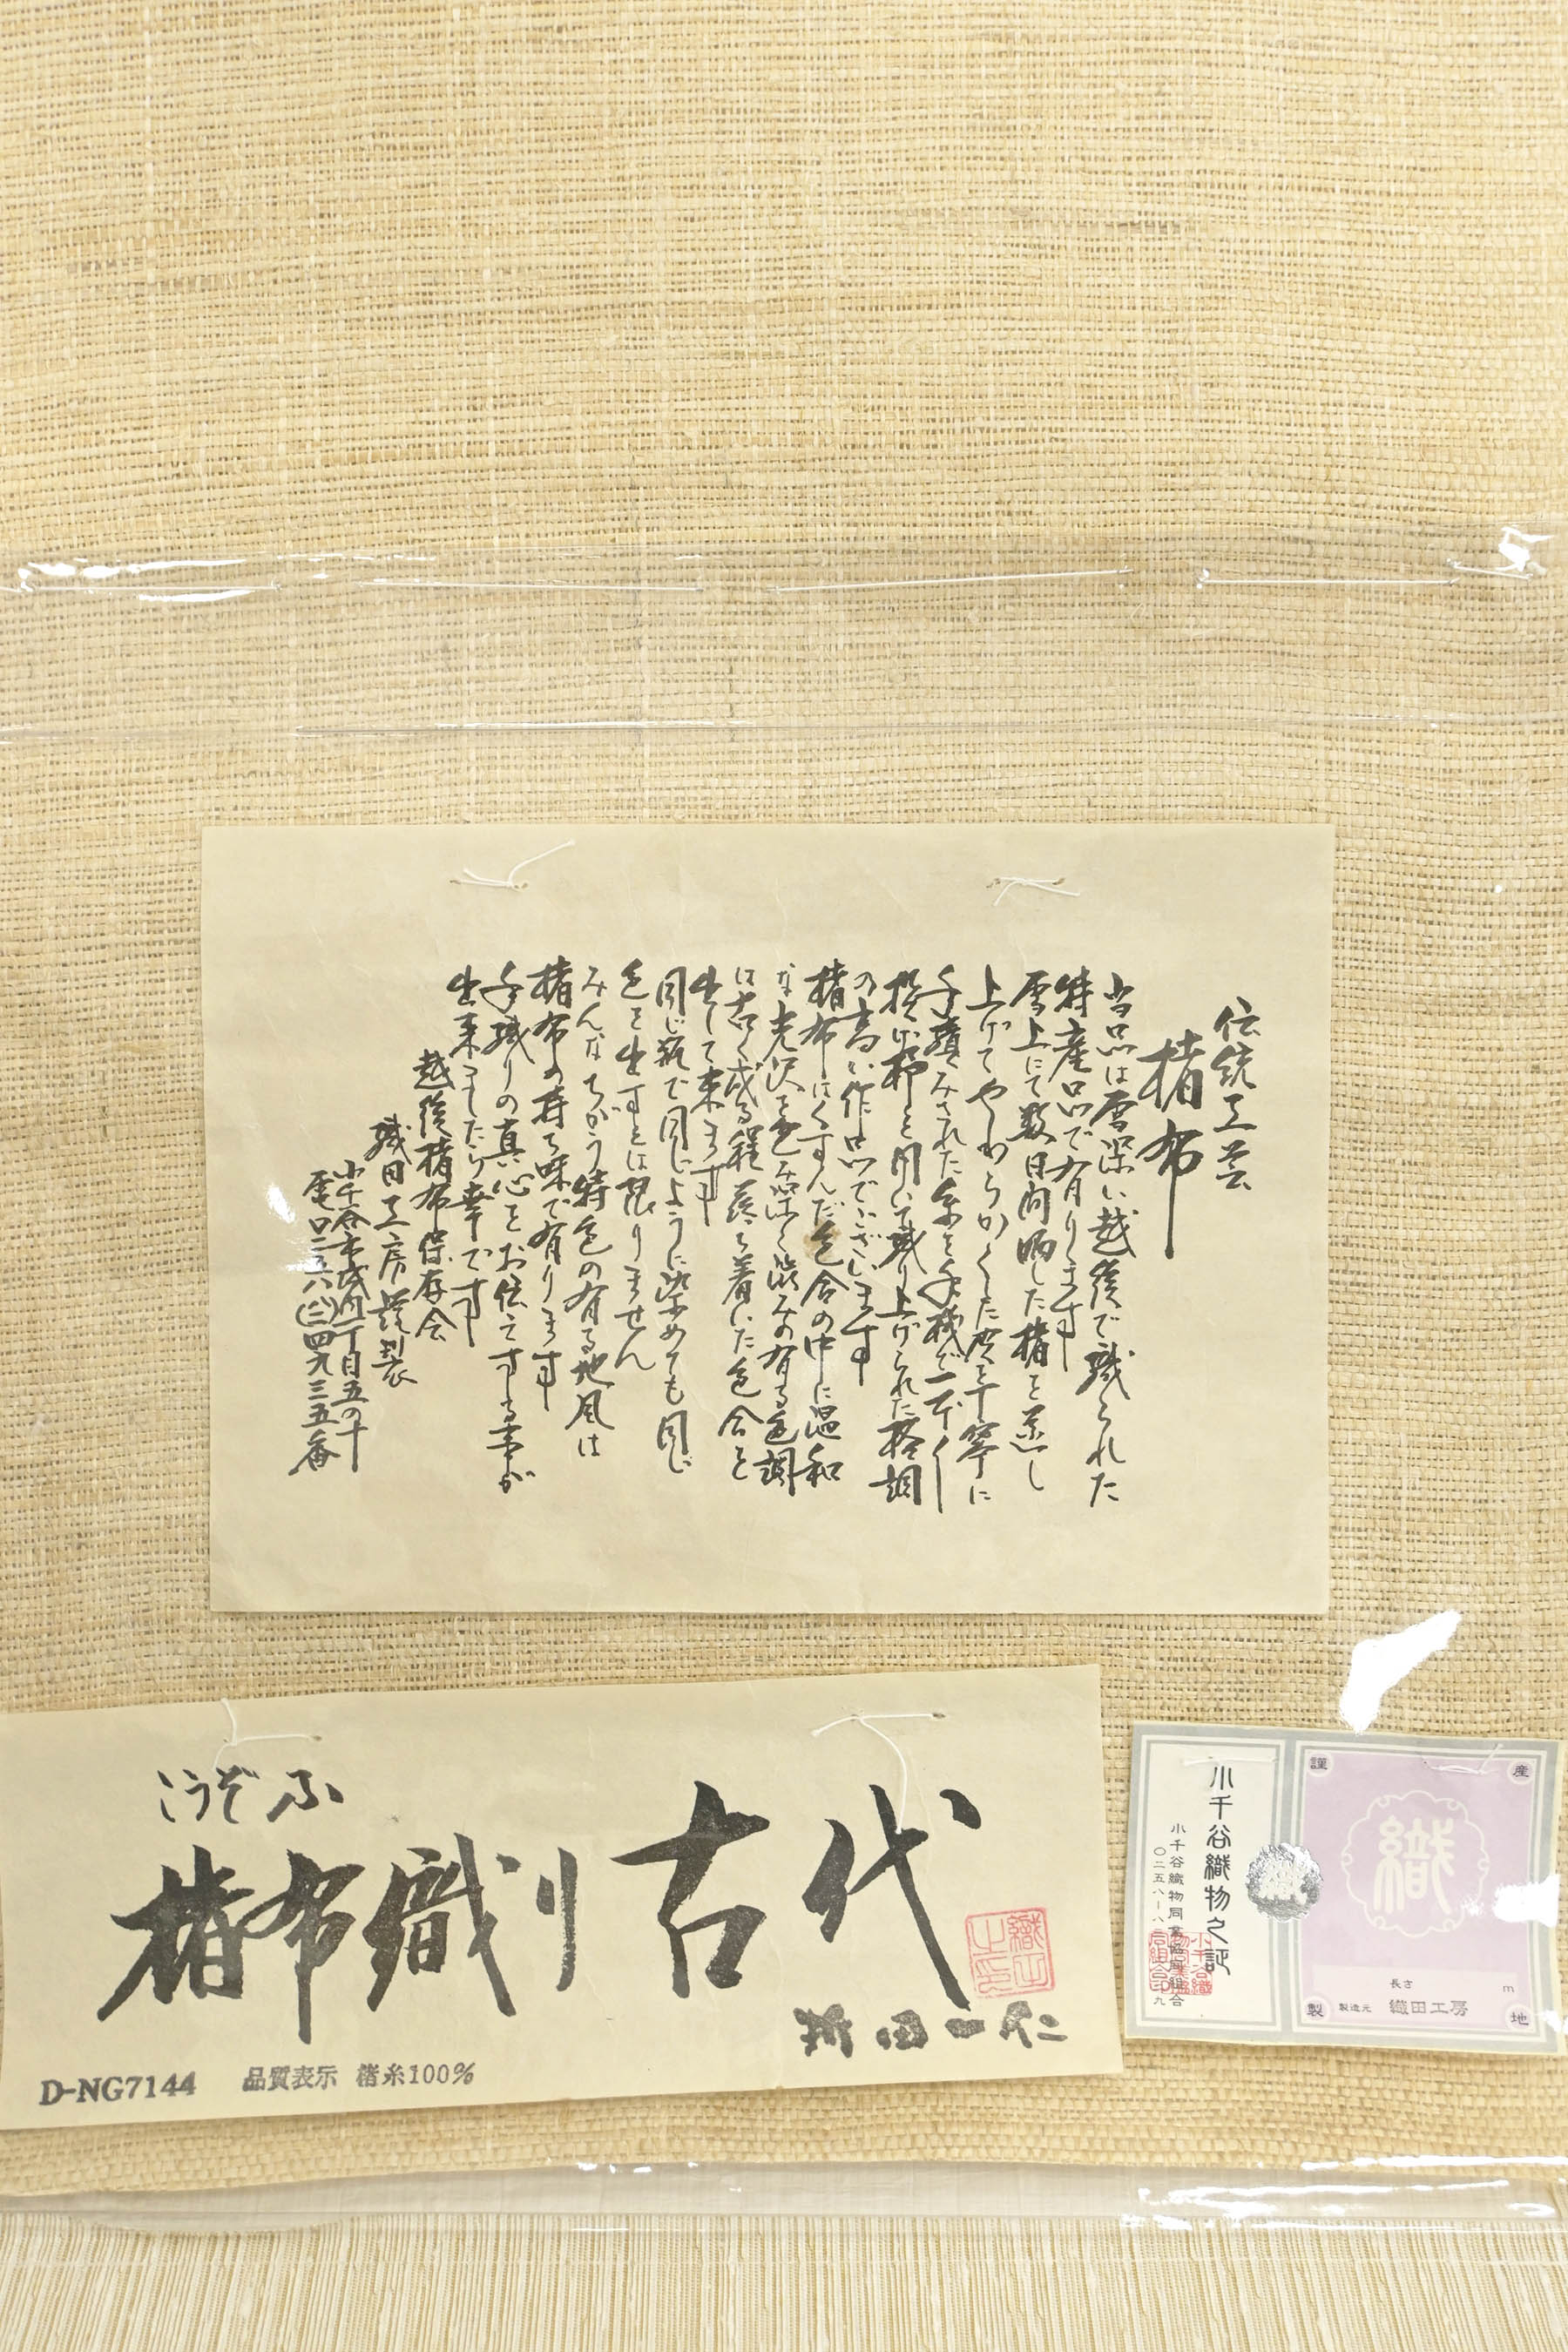 伝統工芸
楮布
当品は雪深い越後で織られた
特産品で有ります
雪上にて数日間晒した楮を蒸し
上げてやわらかくした皮を丁寧に
手績みされた糸を手機で一本一
投げ杼を用いて織り上げられた格調
の高い作品でございます
楮布はくすんだ色合の中に温和
な光沢を包み深く渋みの有る色調
は古く成る程落ち着いた色合を
出して来ます
同じ瓶で同じように染めても同じ
色を出すとは限りません
みんなちがう特色の有る地風は
楮布の持ち味で有ります
手織りの真心をお伝えする事が
出来ましたら幸です
越後楮布保存会
織田工房謹製
小千谷市城内一丁目五の十
電〇二五八(八三)四九三五番
こうぞふ
楮布織り 古代
織田一仁
D-NG7144 品質表示 楮糸100%
謹 産
織
長さ m
製 製造元 織田工房 地
小千谷織物之証
小千谷織物同業協同組合
〇二五八-八三 九